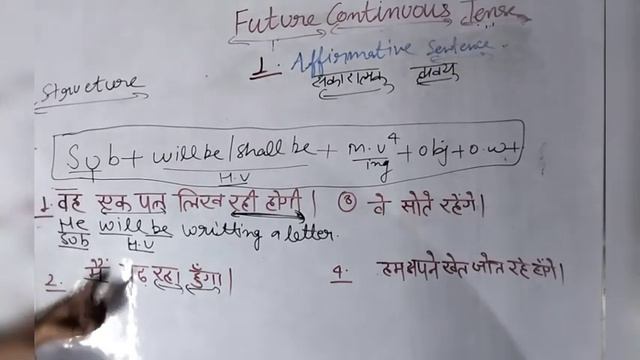 Future Continuous Tense
1. Affirmative Sentence.
सकारात्मक वाक्य
Structure
Sub + will be / shall be + M.V⁴ ing + Obj + O.W+
H.V
1. वह एक पत्र लिख रही होगी।
He will be writting a letter.
Sub H.V
2. मैं रहा हूँगा।
③ वे सोते रहेंगे।
4. हम अपने खेत जोत रहे होंगे।